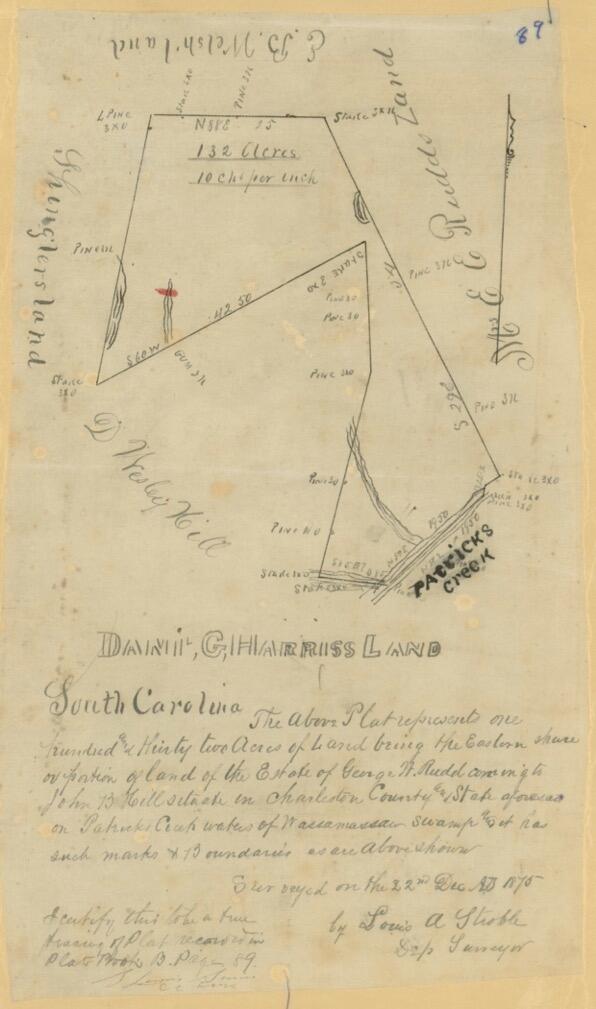 89
E. B. Welsh land
Stake 3XO
PINE 3X
L PINE
3XO
Stake 3X
N88E 25
132 Acres
10 chs per inch
Mrs E E Rudds Land
Shinglers land
PINE
PINE 3X
STAKE 3XO
PINE 30
PINE 30
42 50
S60W
GUM 3X
Stake
3XO
PINE 3XO
S 29E
PINE 3X
D Wesley Hill
PINE 30
Stake 3XO
PINE 3XO
PINE
1950
Stake 3XO
PATRICKS
CREEK
DANIL, G, HARRISS LAND
South Carolina The Above Plat represents one
hundred & thirty two Acres of Land being the Eastern share
or portion of land of the Estate of George W. Rudd coming to
John B Hill situate in Charleston County & State aforesaid
on Patricks Creek waters of Wassamassaw Swamp & it has
such marks & Boundaries as are Above shown
Surveyed on the 22nd Dec AD 1875
by Louis A Stroble
Dep Surveyor
I certify this to be a true
tracing of Plat recorded in
Plat Book B. Page 89.